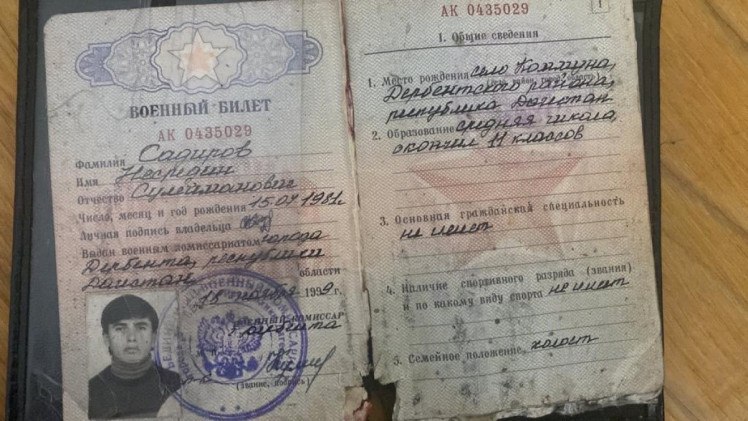 ВОЕННЫЙ БИЛЕТ
АК 0435029
Фамилия Садиров
Имя Несредин
Отчество Сулейманович
Число, месяц и год рождения 15.04 1981г.
Личная подпись владельца
Выдан военным комиссариатом города
Дербента, республики
Дагистан области
18 ноября 1999г.
ВОЕННЫЙ КОМИССАР
(звание, подпись)
АК 0435029
1
I. Общие сведения
1. Место рождения село
Дербентского района,
республика Дагистан
2. Образование средняя школа,
окончил 11 классов
3. Основная гражданская специальность
не имеет
4. Наличие спортивного разряда (звания)
и по какому виду спорта не имеет
5. Семейное положение, холост